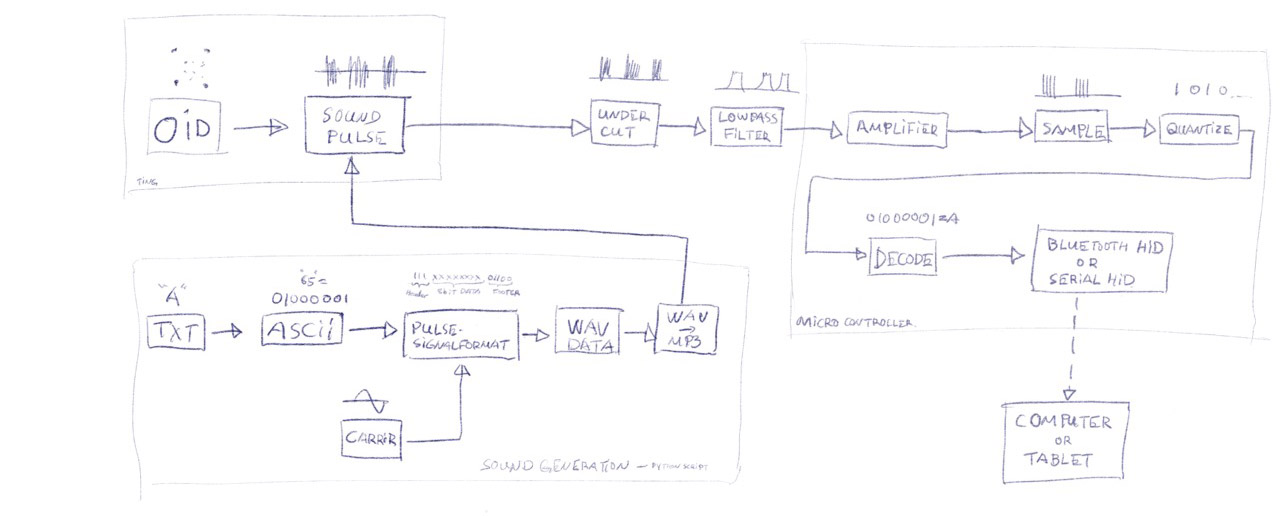 OiD
SOUND
PULSE
TiNG
UNDER
CUT
LOWPASS
FiLTER
AMPLiFiER
SAMPLE
1 0 1 0 ...
QUANTiZE
01000001=A
DECODE
BLUETOOTH HiD
OR
SERIAL HiD
MiCRO CONTROLLER
COMPUTER
OR
TABLET
"A"
TXT
"65"=
01000001
ASCii
111 xxxxxxxx 01100
Header 8BIT DATA FOOTER
PULSE-
SiGNALFORMAT
WAV
DATA
WAV
→
MP3
CARRiR
SOUND GENERATION - PYTHON SCRIPT